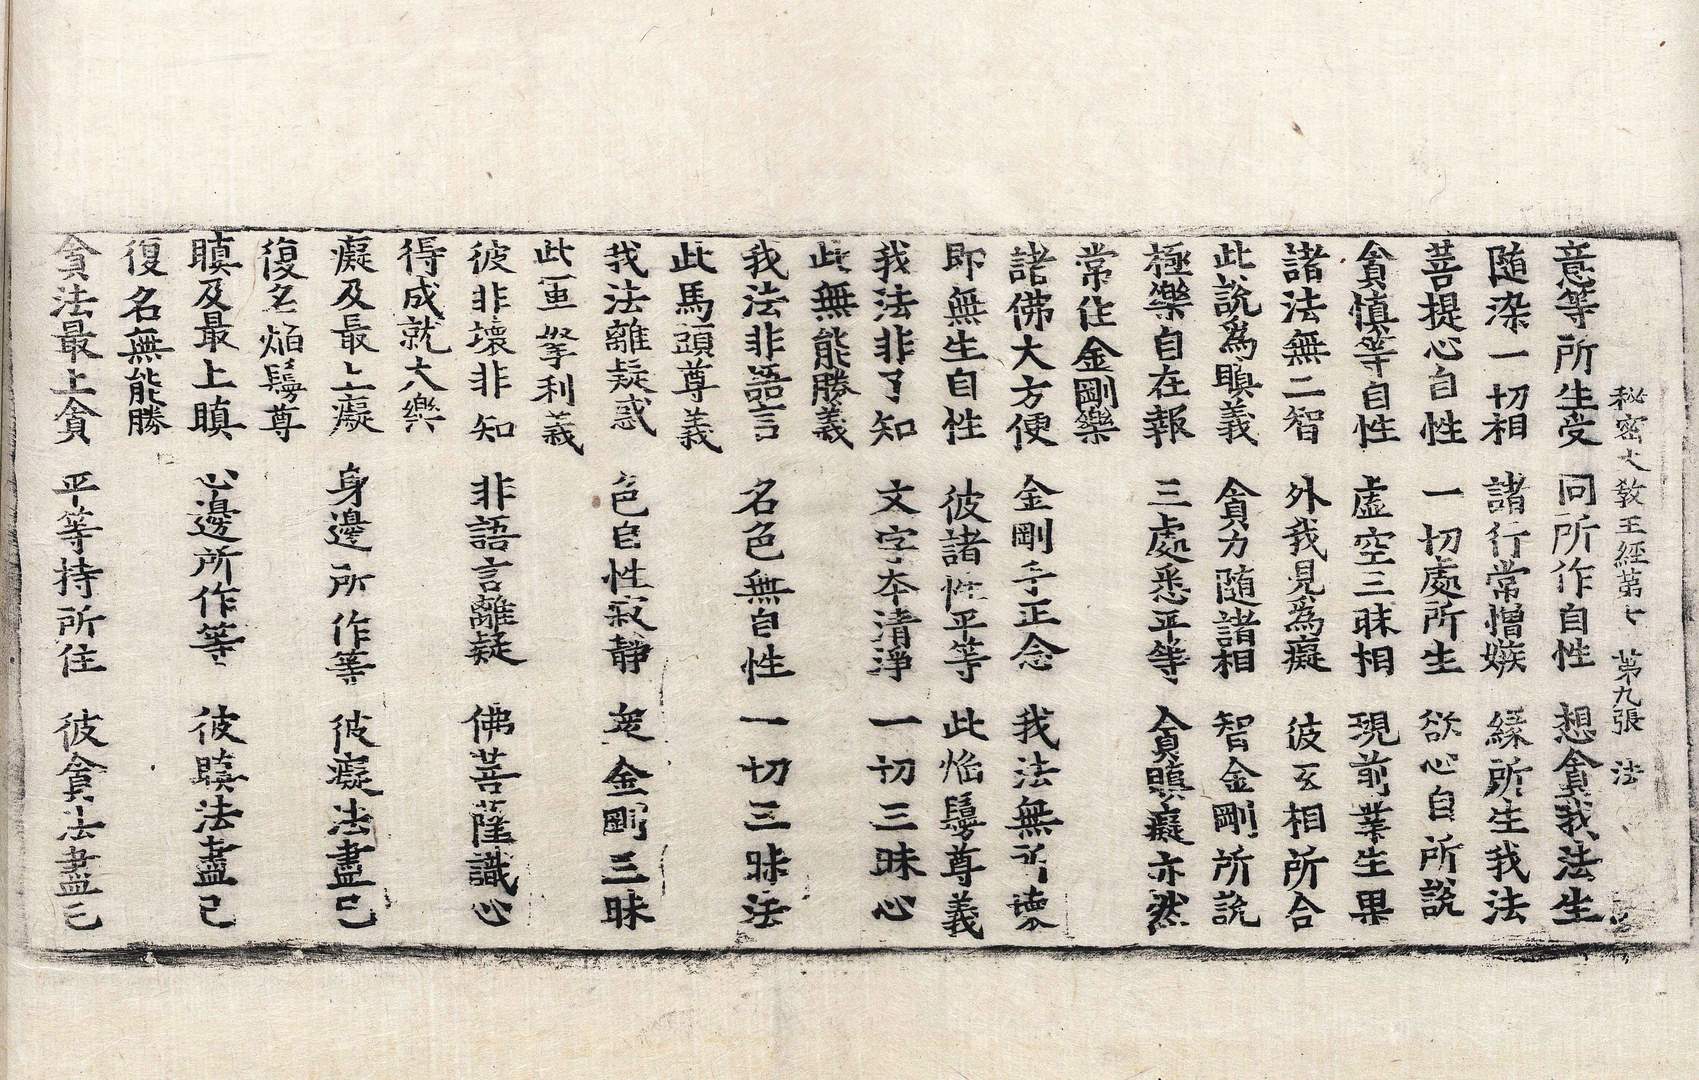 秘密大教王經第七　第九張　法
意等所生受　同所作自性　想貪我法生
随染一切相　諸行常憎嫉　緣所生我法
菩提心自性　一切處所生　欲心自所說
貪慎等自性　虛空三昧相　現前業生果
諸法無二智　外我見為癡　彼互相所合
此說為瞋義　貪力随諸相　智金剛所說
極樂自在報　三處悉平等　貪瞋癡亦然
常住金剛樂
諸佛大方便　金剛手正念　我法無所壞
即無生自性　彼諸性平等　此焰鬘尊義
我法非了知　文字本清淨　一切三昧心
此無能勝義
我法非語言　名色無自性　一切三昧法
此馬頭尊義
我法離疑惑　色自性寂靜　是金剛三昧
此軍拏利義
彼非壞非知　非語言離疑　佛菩薩識心
得成就大樂
癡及最上癡　身邊所作等　彼癡法盡已
復名焰鬘尊
瞋及最上瞋　心邊所作等　彼瞋法盡已
復名無能勝
貪法最上貪　平等持所住　彼貪法盡已